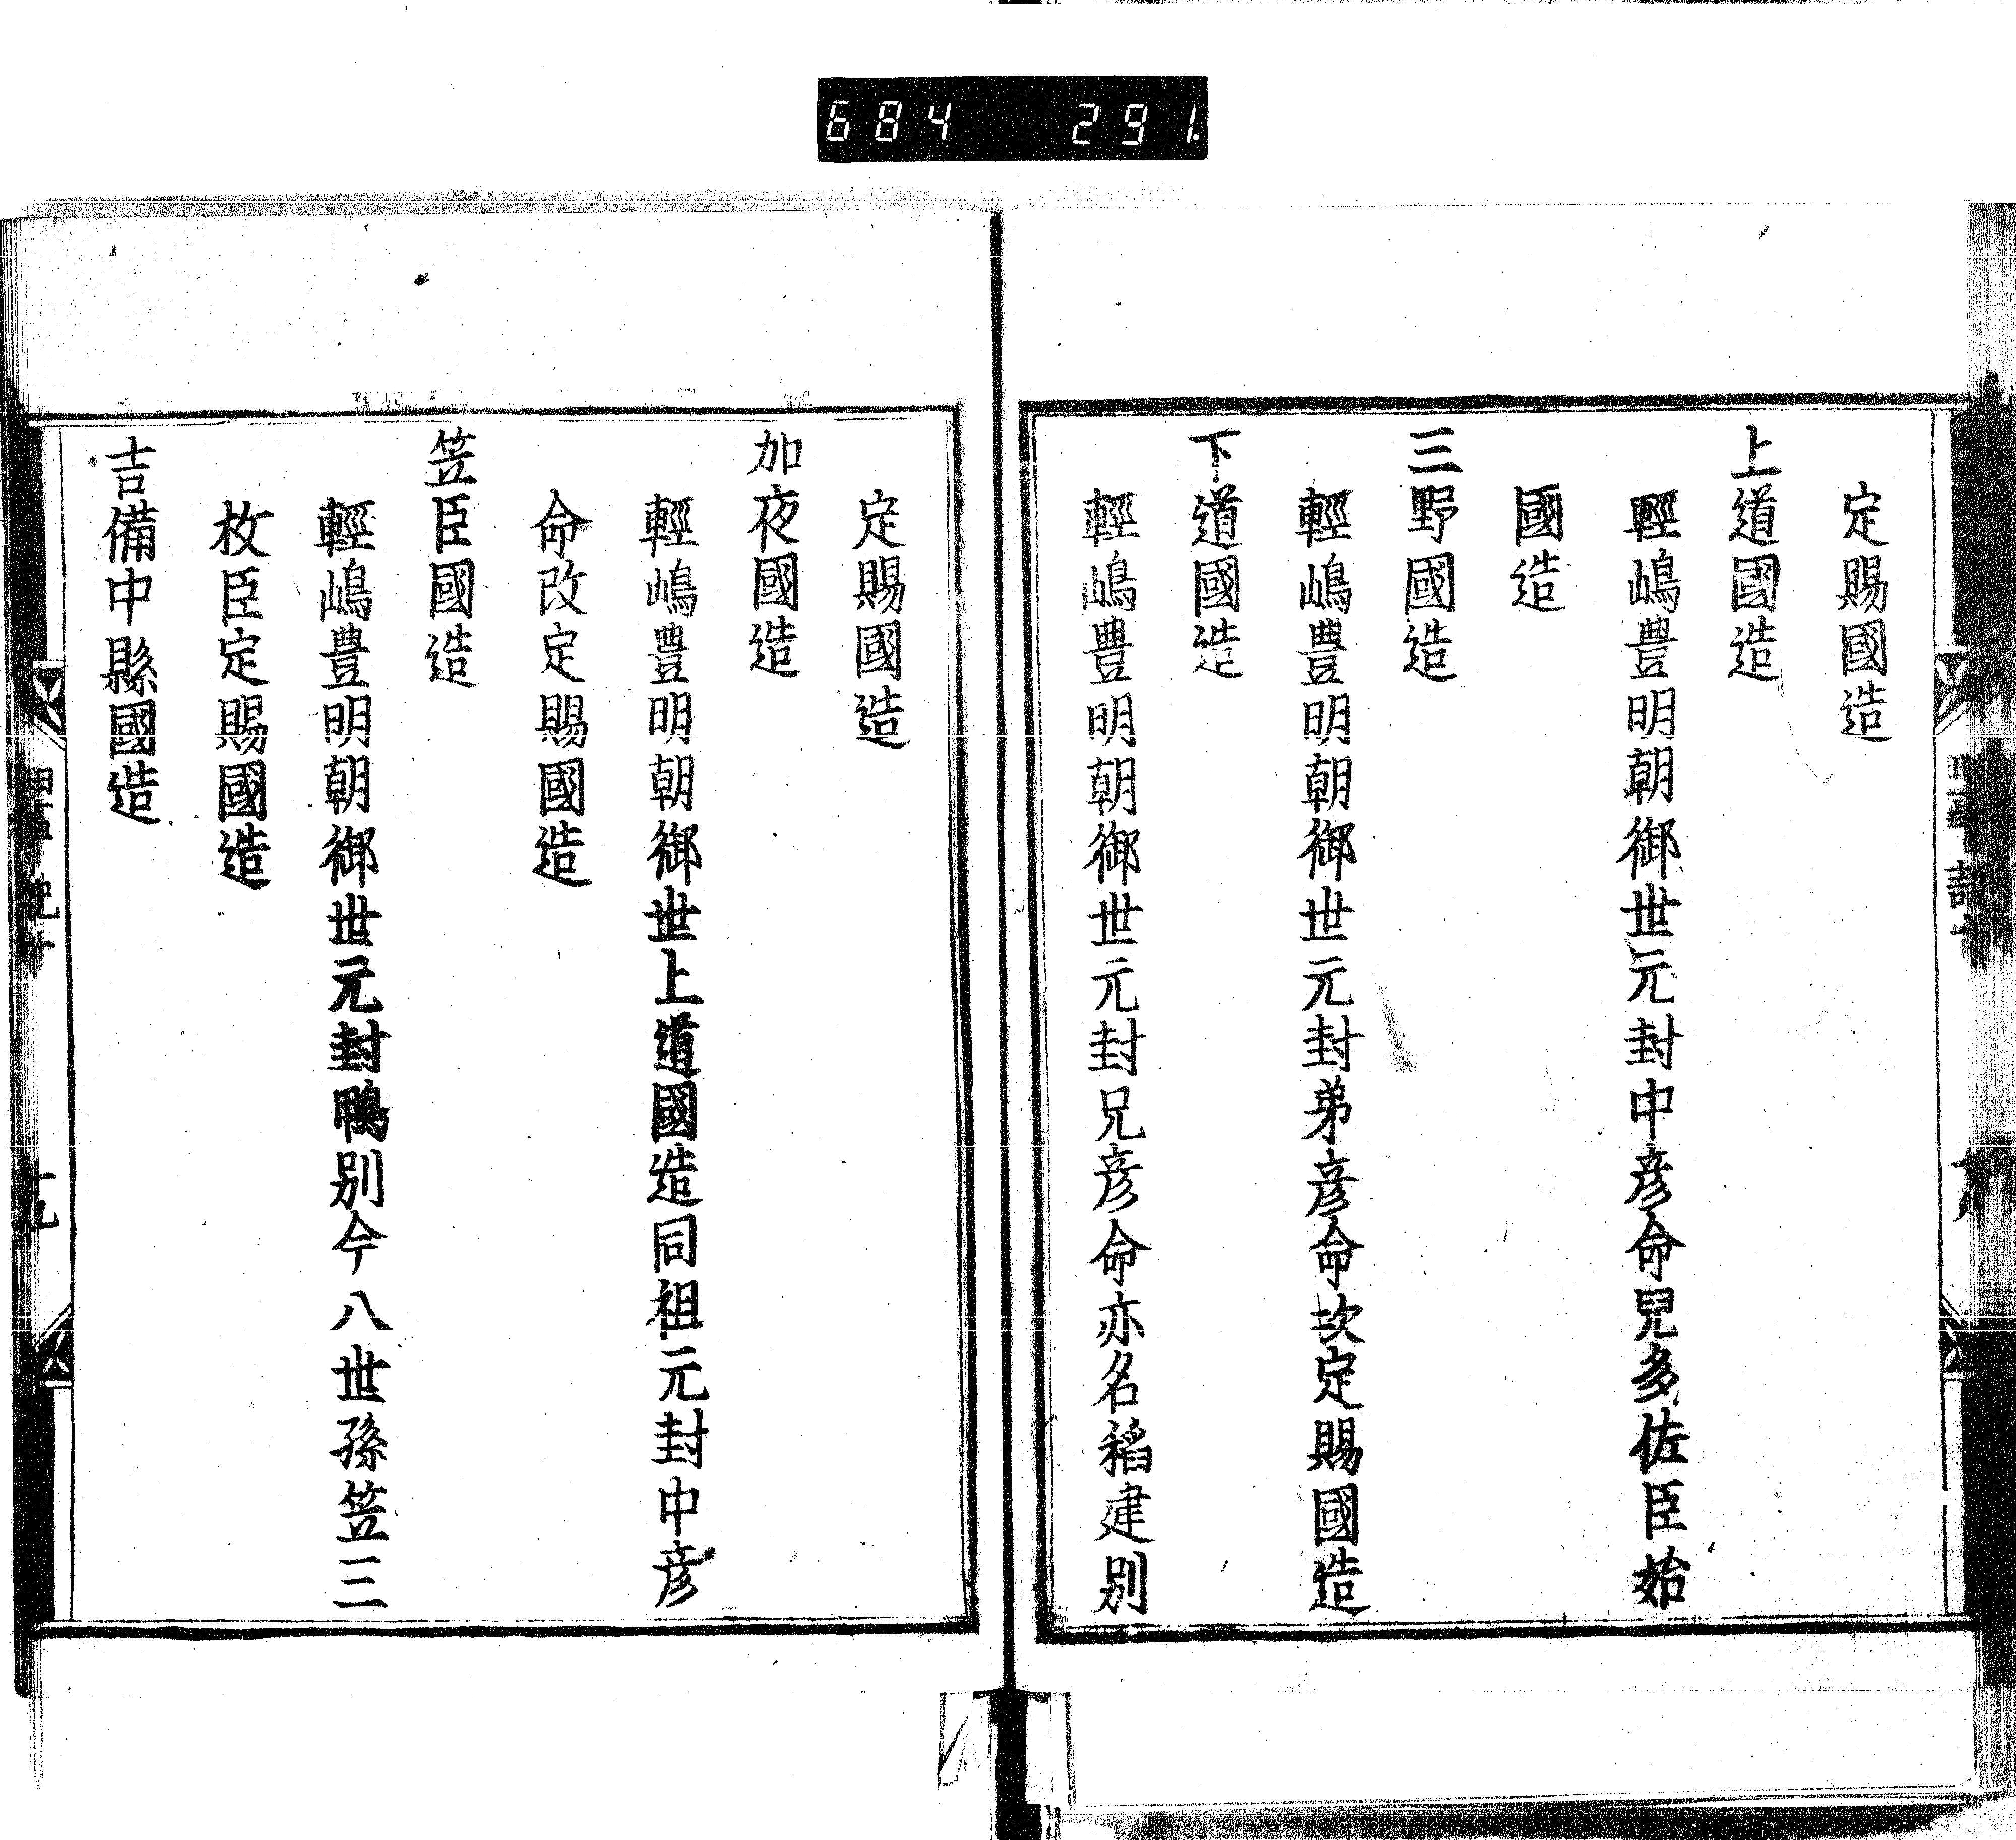 684 291.
定賜國造
上道國造
輕嶋豊明朝御世元封中彦命兒多佐臣始
國造
三野國造
輕嶋豊明朝御世元封弟彦命次定賜國造
下道國造
輕嶋豊明朝御世元封兄彦命亦名稻建別
定賜國造
加夜國造
輕嶋豊明朝御世上道國造同祖元封中彦
命改定賜國造
笠臣國造
輕嶋豊明朝御世元封鴨別今八世孫笠三
枚臣定賜國造
吉備中縣國造